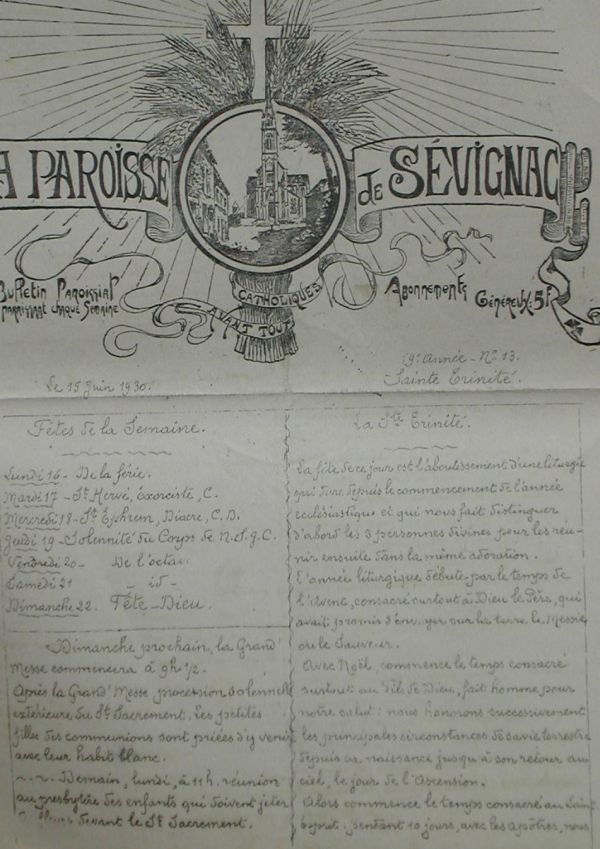 A PAROISSE DE SÉVIGNAC
BULLETIN PAROISSIAL
PARAISSANT CHAQUE SEMAINE
CATHOLIQUES
AVANT TOUT
ABONNEMENTS
GÉNÉREUX: 5F
Le 15 Juin 1930.
19e Année - No 13.
Sainte Trinité.
Fêtes de la Semaine.
Lundi 16 - De la férie.
Mardi 17 - St Hervé, exorciste, C.
Mercredi 18 - St Ephrem, Diacre, C. D.
Jeudi 19 - Solennité du Corps de N. S. J. C.
Vendredi 20 - De l'octav.
Samedi 21 - id -
Dimanche 22. Fête-Dieu.
Dimanche prochain, la Grand'
Messe commencera à 9h 1/2.
Après la Grand'Messe, procession solennelle
extérieure du St Sacrement. Les petites
filles des communions sont priées d'y venir
avec leur habit blanc.
~.~. Demain, lundi, à 11h. réunion
au presbytère des enfants qui doivent jeter
devant le St Sacrement.
La Ste Trinité.
La fête de ce jour est l'aboutissement d'une liturgie
qui dure depuis le commencement de l'année
ecclésiastique et qui nous fait distinguer
d'abord les 3 personnes divines pour les réu-
nir ensuite dans la même adoration.
L'année liturgique débute par le temps de
l'Avent, consacré surtout à Dieu le Père, qui
avait promis d'envoyer sur la terre le Messie
ou le Sauveur.
Avec Noël, commence le temps consacré
surtout au Fils de Dieu, fait homme pour
notre salut: nous honorons successivement
les principales circonstances de sa vie terrestre
depuis sa naissance jusqu'à son retour au
ciel, le jour de l'Ascension.
Alors commence le temps consacré au Saint
Esprit: pendant 10 jours, avec les apôtres, nous